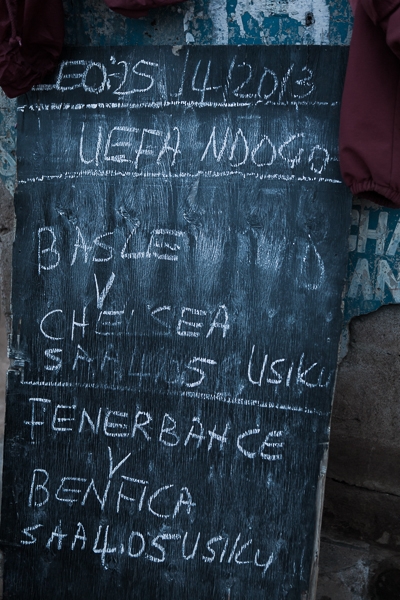 LEO:25/4/2013
UEFA NDOGO
BASLE
V
CHELSEA
SAA 4:05 USIKU
FENERBAHCE
V
BENFICA
SAA 4:05 USIKU